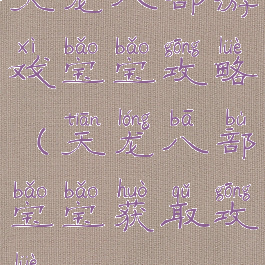 天龙八部游
xì bǎo bǎo gōng lüè
戏宝宝攻略
tiān lóng bā bù
(天龙八部
bǎo bǎo huò qǔ gōng
宝宝获取攻
lüè